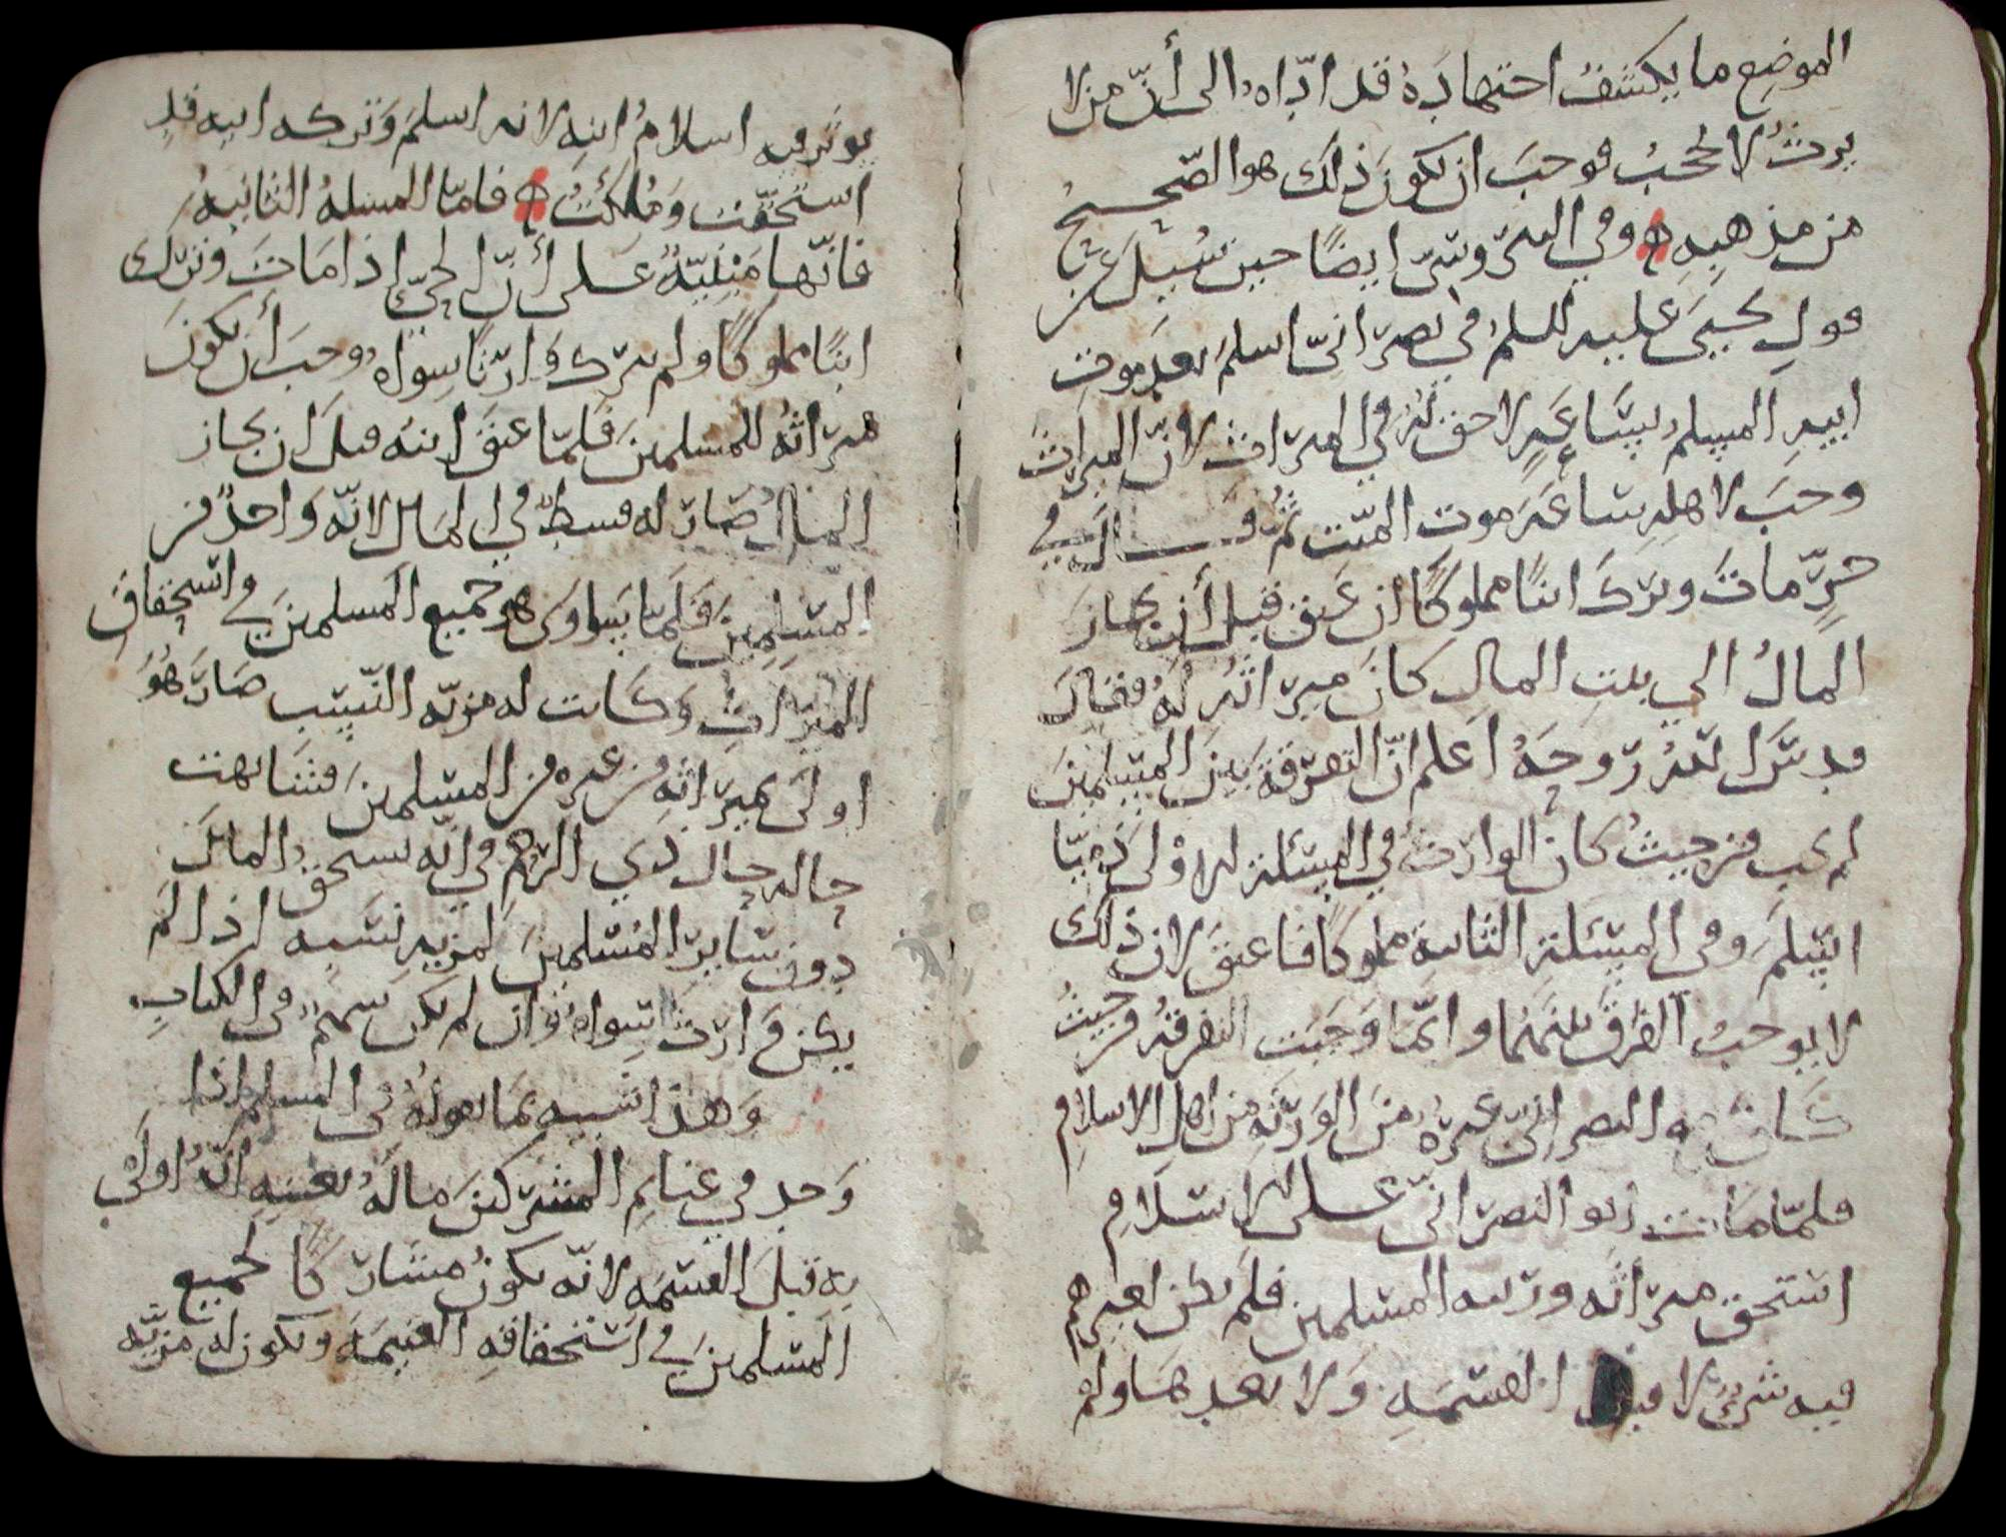 الموضِعِ ما يكشفُ اجتهادَهُ قد ادّاهُ الى أنّ من لا
يرثُ لا يحجبُ فوجبَ ان يكونَ ذلكَ هو الصّحيحُ
من مذهبِهِ وفي السيّ وسيّ ايضًا حين سُئِلَ عَن
قولِ يحيَى عليه السلمُ في نصرَانيّ اسلمَ بعدَ موتِ
ابيهِ المسلم بسَاعَةٍ لا حق لهُ في الميرَاث لانّ الميرَاثَ
وجبَ لاهلِهِ سَاعَةَ موت الميّت ثُمّ قَال في
حرٍّ ماتَ وترَكَ ابنًا مملوكًا ان عَتق قبل أن يحازَ
المالُ الى بيتِ المالِ كانَ ميرَاثُه لَهُ فقال
قدِ سَرَا لعَدُ رّوحهُ اعلم انّ التفرقةَ بينَ المسئلتينِ
لم تجب من حيثُ كانَ الوارثُ في المسئلة الاولى ذميّا
اسلمَ وفي المسئلةِ الثانيةِ مملوكًا فاعتقَ لان ذلكَ
لا يوجبُ الفرقَ بينَهُمَا وانّما وَجَبَت التفرقةُ من حيثُ
كانَ معه النصرانيّ غيرَهُ منَ الوَرَثَةِ من اهل الاسلامِ
فلمّا مَاتَ ابو النصرَانيّ على الاسلامِ
استحق ميرَاثَه ورثته المسلمين فلَم يكن لغيرهم
فيه شركٌ لا قبل القسمَةِ وَلا بعدهَا ولم
يوثر فيه اسلامُ ابنِه لانه اسلمَ وَتركه ابيه قد
استُحقّت وَمُلِكَتْ فامّا المسئلهُ الثانيهُ
فانّها مَبنيّةٌ عَلى أنّ الحيّ اذا مَاتَ وترَكَ
ابنًا مملوكًا ولم يترك وَارثًا سِوَاهُ وجبَ أن يكونَ
ميرَاثُهُ للمسلمينَ فلمّا عتقَ ابنهُ قبلَ ان يحازَ
المالُ صَارَ له قسطٌ في المَال لانّه وَاحدٌ من
المسلِمِينَ فَلَمّا تسَاوَى هو جميع المسلمينَ في استحقاقِ
الميرَاثِ وَكَانت له مزيّة النّسَب صَارَ هُوَ
اولَى بميرَاثِهِ من غيره من المسلمينَ فشَابهت
حاله حالَ ذي الرّحم في انّه يستحق المالَ
دون سَايرِ المسْلمينَ لمزيةِ نسَبه اذا لم
يكن وَارث سِوَاهُ وَان لم يكن سَهمٌ في الكتابِ
وَهذا شبيه بمَا نقولهُ في المسلم اذا
وَجد في غنايمِ المشركينَ مالَهُ بعَينِهِ انّهُ اولَى
به قبلَ القسمَه لانّه يكونُ مشَاركًا لجميع
المسلمينَ في استحقاقهِ الغنيمَةَ ويكون له مزيّه